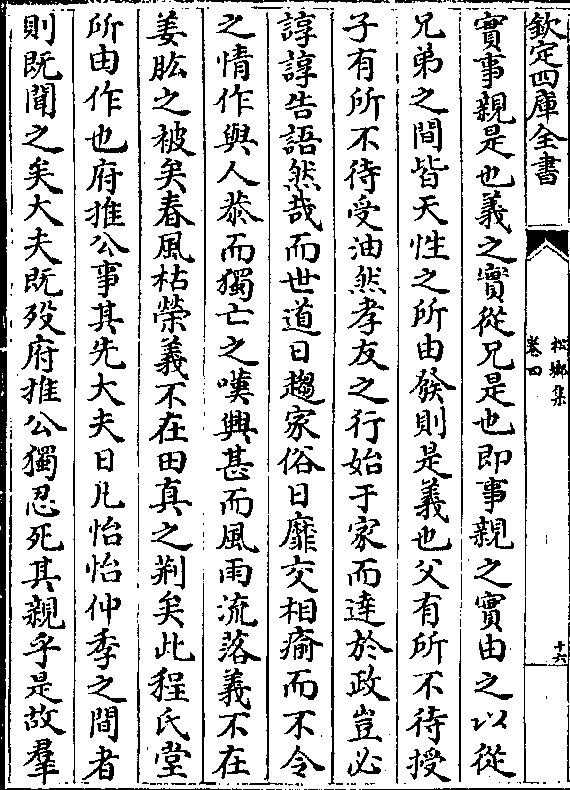 欽定四庫全書
松鄉集
卷四
十六
實事親是也義之實從兄是也即事親之實由之以從
兄弟之間皆天性之所由發則是義也父有所不待授
子有所不待受油然孝友之行始于家而達於政豈必
諄諄告語然哉而世道日趨家俗日靡交相瘉而不令
之情作與人恭而獨亡之嘆興甚而風雨流落義不在
姜肱之被矣春風枯榮義不在田真之荆矣此程氏堂
所由作也府推公事其先大夫日凡怡怡仲季之間者
則既聞之矣大夫既歿府推公獨忍死其親乎是故羣